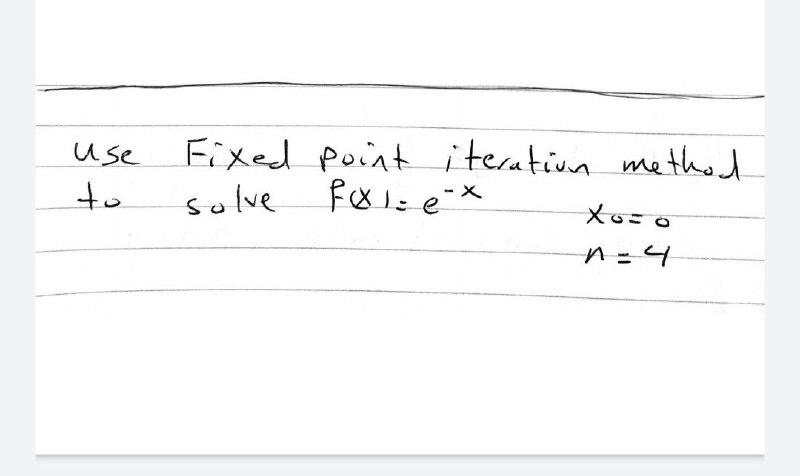 use Fixed point iteration method
to solve f(x)= e^-x
x0=0
n=4